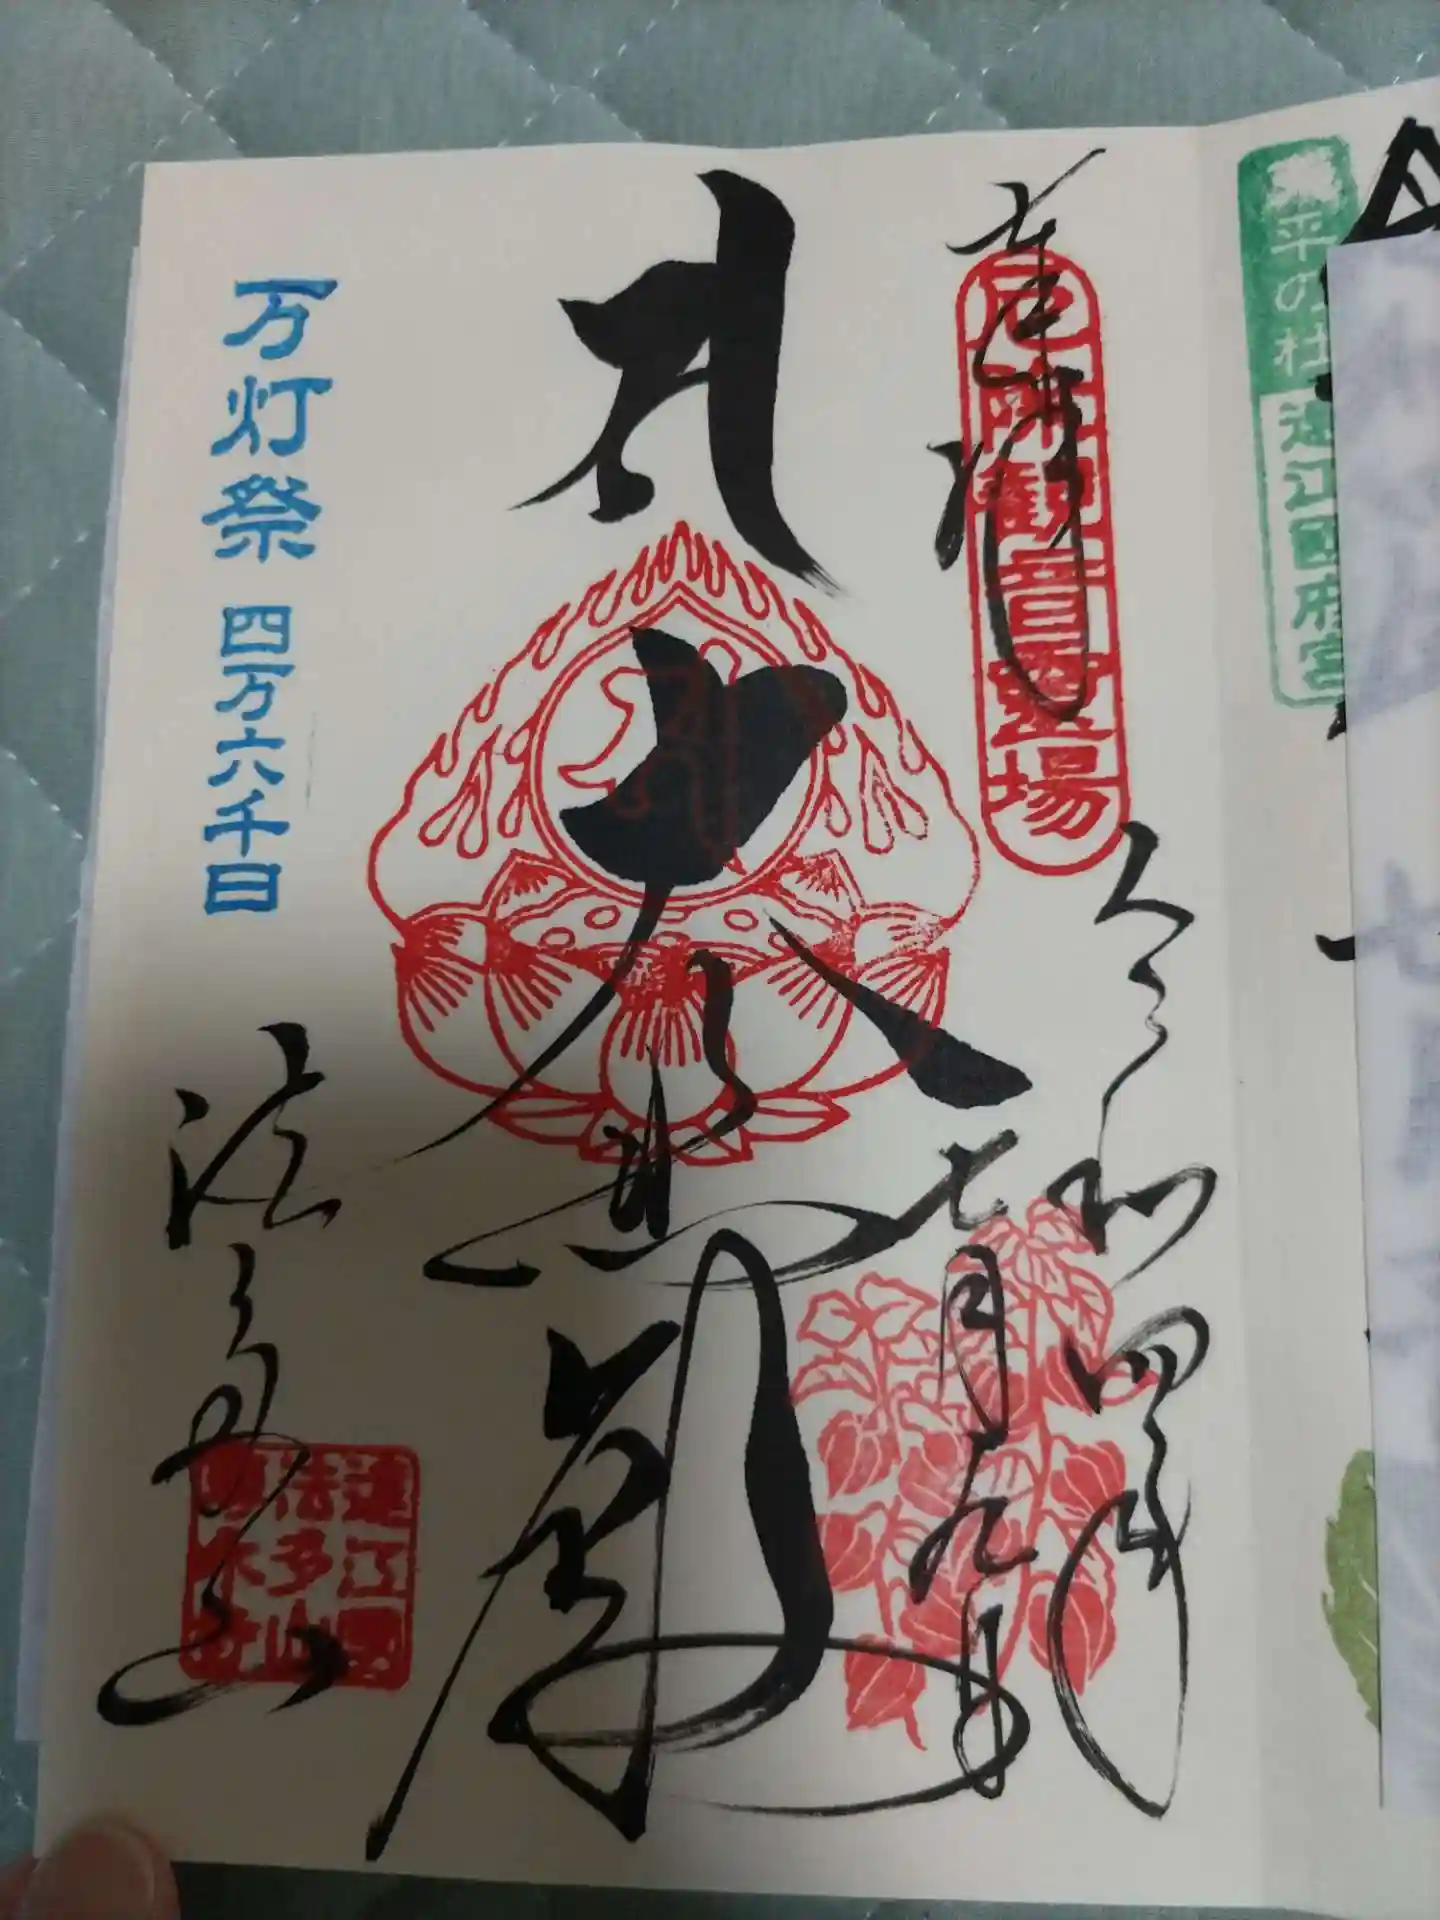 奉拝
厄除観音霊場
令和四年
七月九日
大悲
万灯祭 四万六千日
法多山
遠江國
法多山
尊永寺
平の杜 遠江国府宮